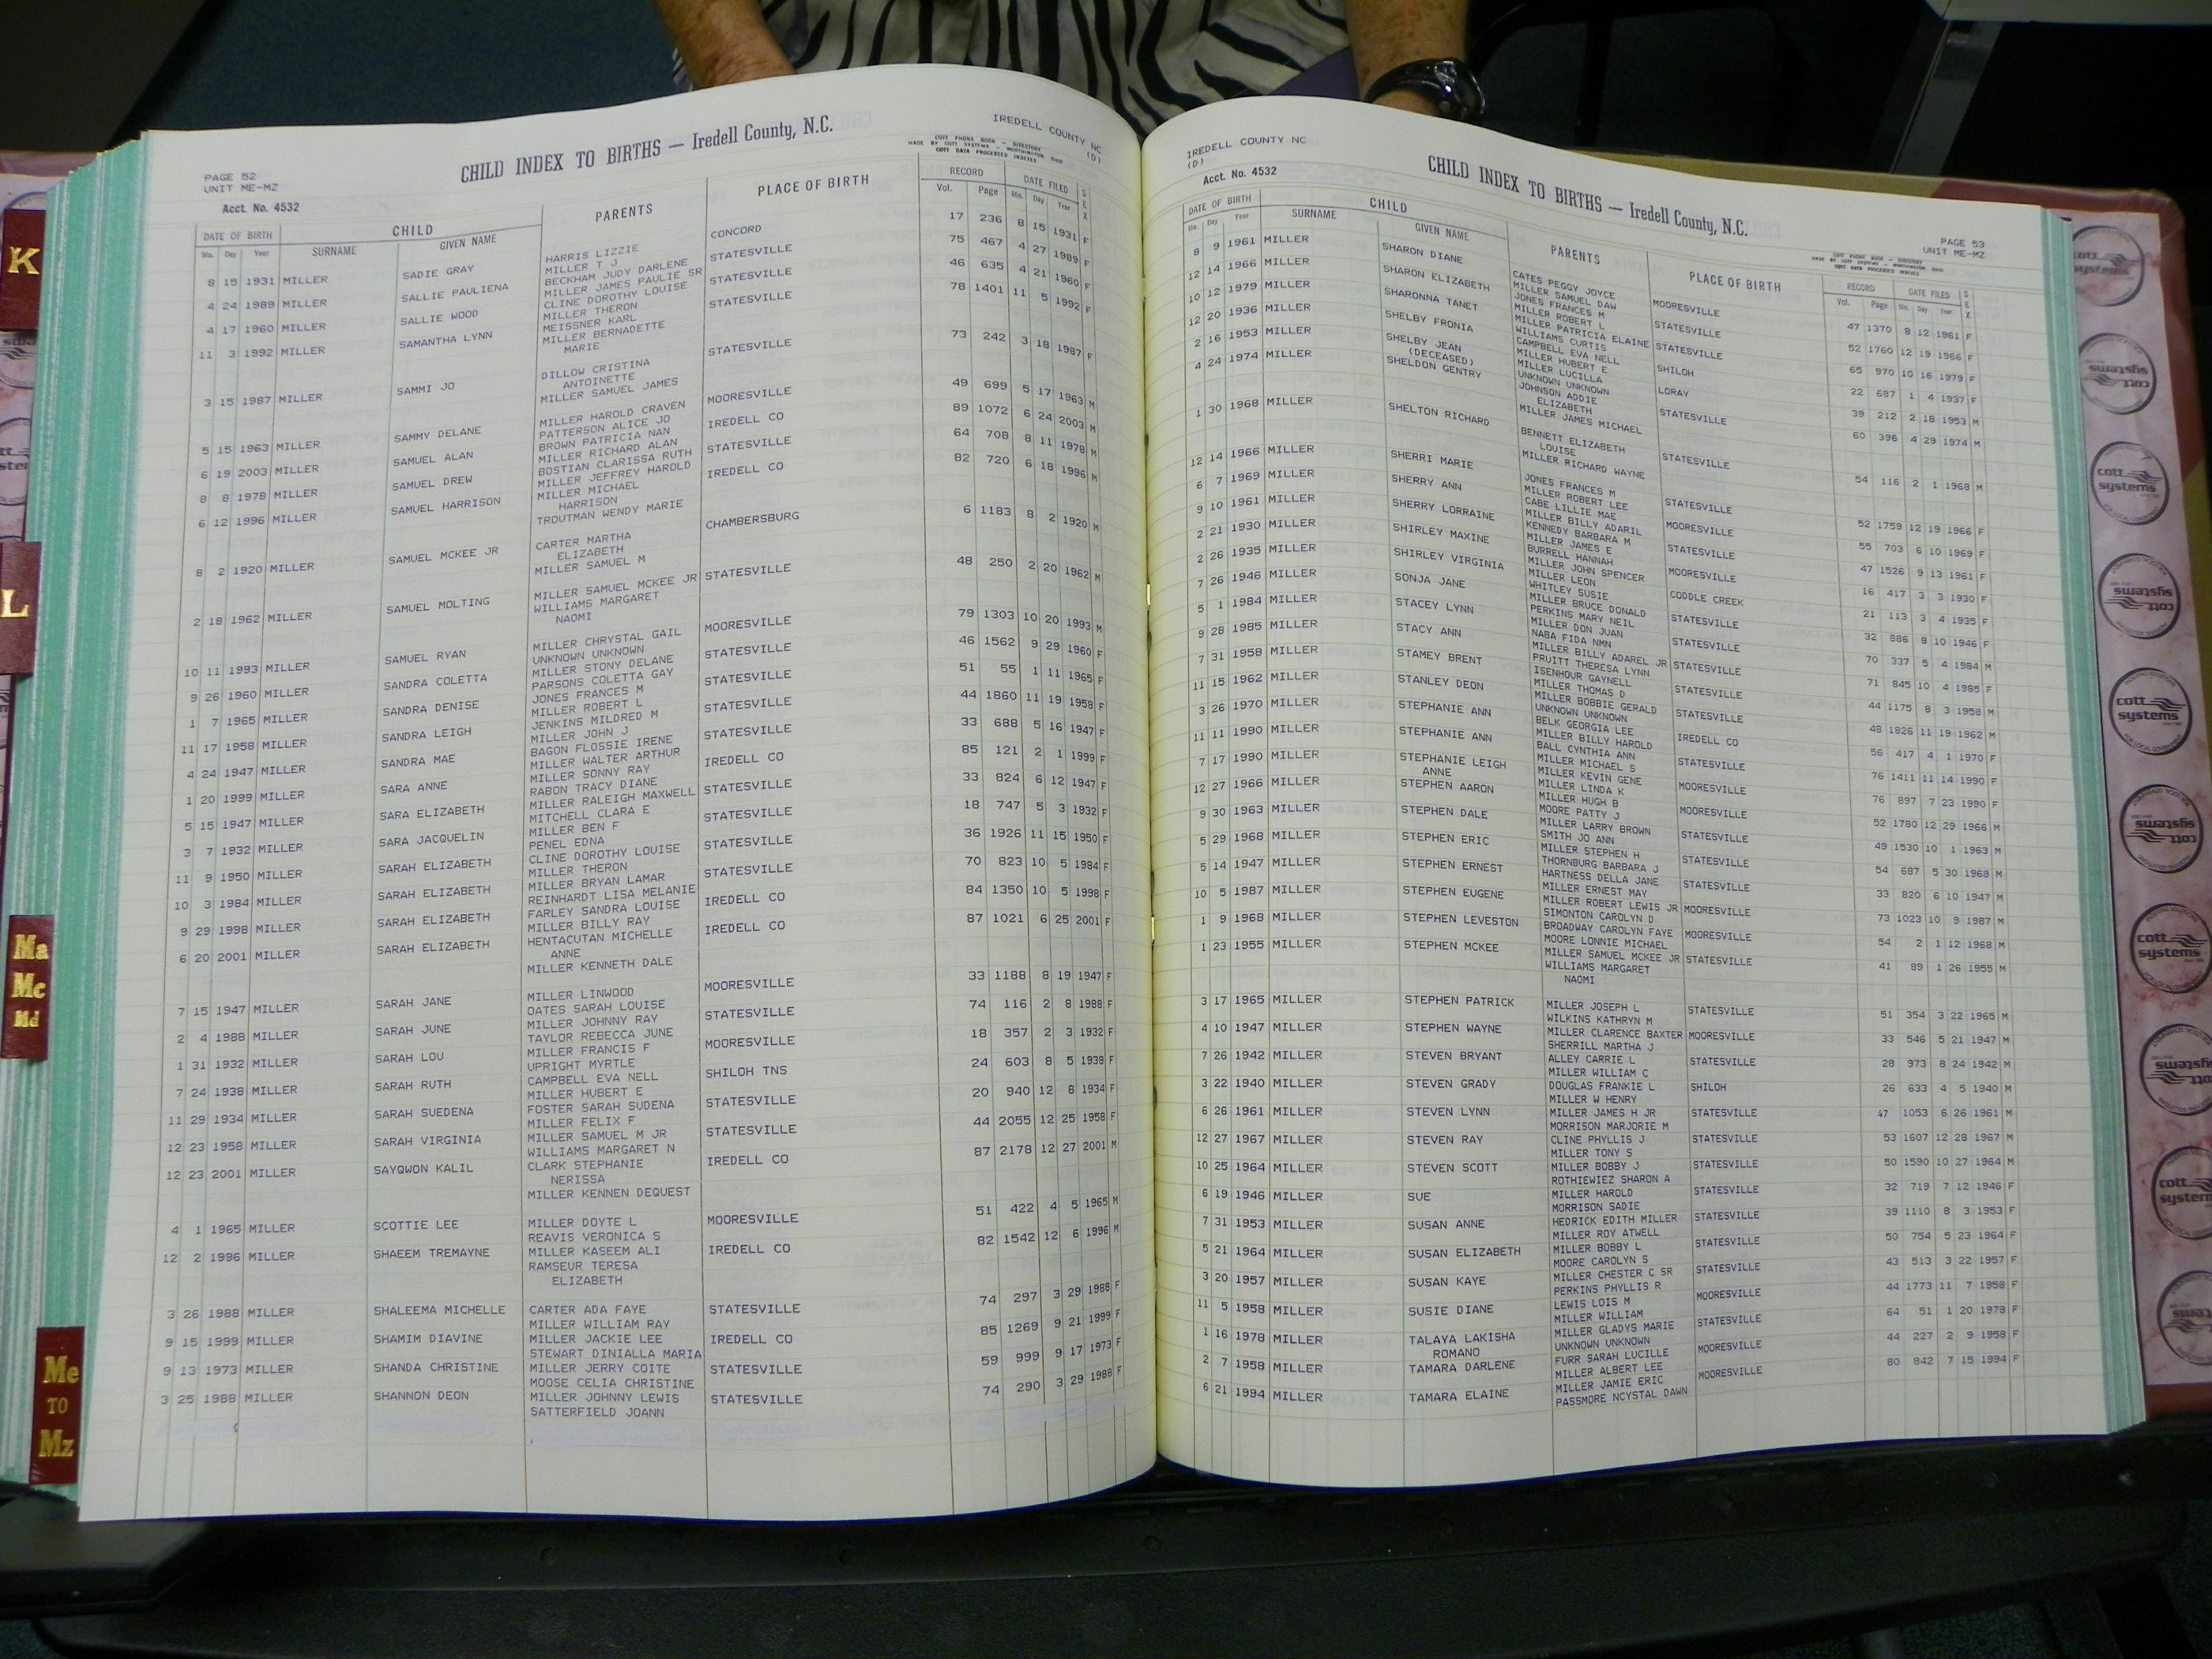 K
L
Ma
Mc
Md
Me
TO
Mz
PAGE 52
UNIT ME-MZ
Acct. No. 4532
CHILD INDEX TO BIRTHS — Iredell County, N.C.
IREDELL COUNTY NC
(D)
COTT PHONE BOOK - DIRECTORY
MADE BY COTT SYSTEMS - WORTHINGTON, OHIO
COTT DATA PROCESSED INDEXES
DATE OF BIRTH CHILD PARENTS PLACE OF BIRTH RECORD DATE FILED SEX
Mo. Day Year SURNAME GIVEN NAME Vol. Page Mo. Day Year
8 15 1931 MILLER SADIE GRAY HARRIS LIZZIE CONCORD 17 236 8 15 1931 F
MILLER T J
4 24 1989 MILLER SALLIE PAULIENA BECKHAM JUDY DARLENE STATESVILLE 75 467 4 27 1989 F
MILLER JAMES PAULIE SR
4 17 1960 MILLER SALLIE WOOD CLINE DOROTHY LOUISE STATESVILLE 46 635 4 21 1960 F
MILLER THERON
11 3 1992 MILLER SAMANTHA LYNN MEISSNER KARL STATESVILLE 78 1401 11 5 1992 F
MILLER BERNADETTE
MARIE
3 15 1987 MILLER SAMMI JO DILLOW CRISTINA STATESVILLE 73 242 3 18 1987 F
ANTOINETTE
MILLER SAMUEL JAMES
5 15 1963 MILLER SAMMY DELANE MILLER HAROLD CRAVEN MOORESVILLE 49 699 5 17 1963 M
PATTERSON ALICE JO
6 19 2003 MILLER SAMUEL ALAN BROWN PATRICIA NAN IREDELL CO 89 1072 6 24 2003 M
MILLER RICHARD ALAN
8 8 1978 MILLER SAMUEL DREW BOSTIAN CLARISSA RUTH STATESVILLE 64 708 8 11 1978 M
MILLER JEFFREY HAROLD
6 12 1996 MILLER SAMUEL HARRISON MILLER MICHAEL IREDELL CO 82 720 6 18 1996 M
HARRISON
TROUTMAN WENDY MARIE
8 2 1920 MILLER SAMUEL MCKEE JR CARTER MARTHA CHAMBERSBURG 6 1183 8 2 1920 M
ELIZABETH
MILLER SAMUEL M
2 18 1962 MILLER SAMUEL MOLTING MILLER SAMUEL MCKEE JR STATESVILLE 48 250 2 20 1962 M
WILLIAMS MARGARET
NAOMI
10 11 1993 MILLER SAMUEL RYAN MILLER CHRYSTAL GAIL MOORESVILLE 79 1303 10 20 1993 M
UNKNOWN UNKNOWN
9 26 1960 MILLER SANDRA COLETTA MILLER STONY DELANE STATESVILLE 46 1562 9 29 1960 F
PARSONS COLETTA GAY
1 7 1965 MILLER SANDRA DENISE JONES FRANCES M STATESVILLE 51 55 1 11 1965 F
MILLER ROBERT L
11 17 1958 MILLER SANDRA LEIGH JENKINS MILDRED M STATESVILLE 44 1860 11 19 1958 F
MILLER JOHN J
4 24 1947 MILLER SANDRA MAE BAGON FLOSSIE IRENE STATESVILLE 33 688 5 16 1947 F
MILLER WALTER ARTHUR
1 20 1999 MILLER SARA ANNE MILLER SONNY RAY IREDELL CO 85 121 2 1 1999 F
RABON TRACY DIANE
5 15 1947 MILLER SARA ELIZABETH MILLER RALEIGH MAXWELL STATESVILLE 33 824 6 12 1947 F
MITCHELL CLARA E
3 7 1932 MILLER SARA JACQUELIN MILLER BEN F STATESVILLE 18 747 5 3 1932 F
PENEL EDNA
11 9 1950 MILLER SARAH ELIZABETH CLINE DOROTHY LOUISE STATESVILLE 36 1926 11 15 1950 F
MILLER THERON
10 3 1984 MILLER SARAH ELIZABETH MILLER BRYAN LAMAR STATESVILLE 70 823 10 5 1984 F
REINHARDT LISA MELANIE
9 29 1998 MILLER SARAH ELIZABETH FARLEY SANDRA LOUISE IREDELL CO 84 1350 10 5 1998 F
MILLER BILLY RAY
6 20 2001 MILLER SARAH ELIZABETH HENTACUTAN MICHELLE IREDELL CO 87 1021 6 25 2001 F
ANNE
MILLER KENNETH DALE
7 15 1947 MILLER SARAH JANE MILLER LINWOOD MOORESVILLE 33 1188 8 19 1947 F
OATES SARAH LOUISE
2 4 1988 MILLER SARAH JUNE MILLER JOHNNY RAY STATESVILLE 74 116 2 8 1988 F
TAYLOR REBECCA JUNE
1 31 1932 MILLER SARAH LOU MILLER FRANCIS F MOORESVILLE 18 357 2 3 1932 F
UPRIGHT MYRTLE
7 24 1938 MILLER SARAH RUTH CAMPBELL EVA NELL SHILOH TNS 24 603 8 5 1938 F
MILLER HUBERT E
11 29 1934 MILLER SARAH SUEDENA FOSTER SARAH SUDENA STATESVILLE 20 940 12 8 1934 F
MILLER FELIX F
12 23 1958 MILLER SARAH VIRGINIA MILLER SAMUEL M JR STATESVILLE 44 2055 12 25 1958 F
WILLIAMS MARGARET N
12 23 2001 MILLER SAYQWON KALIL CLARK STEPHANIE IREDELL CO 87 2178 12 27 2001 M
NERISSA
MILLER KENNEN DEQUEST
4 1 1965 MILLER SCOTTIE LEE MILLER DOYTE L MOORESVILLE 51 422 4 5 1965 M
REAVIS VERONICA S
12 2 1996 MILLER SHAEEM TREMAYNE MILLER KASEEM ALI IREDELL CO 82 1542 12 6 1996 M
RAMSEUR TERESA
ELIZABETH
3 26 1988 MILLER SHALEEMA MICHELLE CARTER ADA FAYE STATESVILLE 74 297 3 29 1988 F
MILLER WILLIAM RAY
9 15 1999 MILLER SHAMIM DIAVINE MILLER JACKIE LEE IREDELL CO 85 1269 9 21 1999 F
STEWART DINIALLA MARIA
9 13 1973 MILLER SHANDA CHRISTINE MILLER JERRY COITE STATESVILLE 59 999 9 17 1973 F
MOOSE CELIA CHRISTINE
3 25 1988 MILLER SHANNON DEON MILLER JOHNNY LEWIS STATESVILLE 74 290 3 29 1988 F
SATTERFIELD JOANN
IREDELL COUNTY NC
(D)
Acct. No. 4532
CHILD INDEX TO BIRTHS — Iredell County, N.C.
PAGE 53
UNIT ME-MZ
DATE OF BIRTH CHILD PARENTS PLACE OF BIRTH RECORD DATE FILED SEX
Mo. Day Year SURNAME GIVEN NAME Vol. Page Mo. Day Year
8 9 1961 MILLER SHARON DIANE CATES PEGGY JOYCE MOORESVILLE 47 1370 8 12 1961 F
MILLER SAMUEL DAW
12 14 1966 MILLER SHARON ELIZABETH JONES FRANCES M STATESVILLE 52 1760 12 19 1966 F
MILLER ROBERT L
10 12 1979 MILLER SHARONNA TANET MILLER PATRICIA ELAINE STATESVILLE 65 970 10 16 1979 F
WILLIAMS CURTIS
12 20 1936 MILLER SHELBY FRONIA CAMPBELL EVA NELL SHILOH 22 687 1 4 1937 F
MILLER HUBERT E
2 16 1953 MILLER SHELBY JEAN MILLER LUCILLA LORAY 39 212 2 18 1953 M
(DECEASED) UNKNOWN UNKNOWN
4 24 1974 MILLER SHELDON GENTRY JOHNSON ADDIE STATESVILLE 60 396 4 29 1974 M
ELIZABETH
MILLER JAMES MICHAEL
1 30 1968 MILLER SHELTON RICHARD BENNETT ELIZABETH STATESVILLE 54 116 2 1 1968 M
LOUISE
MILLER RICHARD WAYNE
12 14 1966 MILLER SHERRI MARIE JONES FRANCES M STATESVILLE 52 1759 12 19 1966 F
MILLER ROBERT LEE
6 7 1969 MILLER SHERRY ANN CABE LILLIE MAE MOORESVILLE 55 703 6 10 1969 F
MILLER BILLY ADARIL
9 10 1961 MILLER SHERRY LORRAINE KENNEDY BARBARA M STATESVILLE 47 1526 9 13 1961 F
MILLER JAMES E
2 21 1930 MILLER SHIRLEY MAXINE BURRELL HANNAH MOORESVILLE 16 417 3 3 1930 F
MILLER JOHN SPENCER
2 26 1935 MILLER SHIRLEY VIRGINIA MILLER LEON CODDLE CREEK 21 113 3 4 1935 F
WHITLEY SUSIE
7 26 1946 MILLER SONJA JANE MILLER BRUCE DONALD STATESVILLE 32 886 8 10 1946 F
PERKINS MARY NEIL
5 1 1984 MILLER STACEY LYNN MILLER DON JUAN STATESVILLE 70 337 5 4 1984 M
NABA FIDA NMN
9 28 1985 MILLER STACY ANN MILLER BILLY ADAREL JR STATESVILLE 71 845 10 4 1985 F
PRUITT THERESA LYNN
7 31 1958 MILLER STAMEY BRENT ISENHOUR GAYNELL STATESVILLE 44 1175 8 3 1958 M
MILLER THOMAS D
11 15 1962 MILLER STANLEY DEON MILLER BOBBIE GERALD STATESVILLE 48 1826 11 19 1962 M
UNKNOWN UNKNOWN
3 26 1970 MILLER STEPHANIE ANN BELK GEORGIA LEE IREDELL CO 56 417 4 1 1970 F
MILLER BILLY HAROLD
11 11 1990 MILLER STEPHANIE ANN BALL CYNTHIA ANN STATESVILLE 76 1411 11 14 1990 F
MILLER MICHAEL S
7 17 1990 MILLER STEPHANIE LEIGH MILLER KEVIN GENE MOORESVILLE 76 897 7 23 1990 F
ANNE MILLER LINDA K
12 27 1966 MILLER STEPHEN AARON MILLER HUGH B MOORESVILLE 52 1780 12 29 1966 M
MOORE PATTY J
9 30 1963 MILLER STEPHEN DALE MILLER LARRY BROWN STATESVILLE 49 1530 10 1 1963 M
SMITH JO ANN
5 29 1968 MILLER STEPHEN ERIC MILLER STEPHEN H STATESVILLE 54 687 5 30 1968 M
THORNBURG BARBARA J
5 14 1947 MILLER STEPHEN ERNEST HARTNESS DELLA JANE STATESVILLE 33 820 6 10 1947 M
MILLER ERNEST MAY
10 5 1987 MILLER STEPHEN EUGENE MILLER ROBERT LEWIS JR MOORESVILLE 73 1023 10 9 1987 M
SIMONTON CAROLYN D
1 9 1968 MILLER STEPHEN LEVESTON BROADWAY CAROLYN FAYE MOORESVILLE 54 2 1 12 1968 M
MOORE LONNIE MICHAEL
1 23 1955 MILLER STEPHEN MCKEE MILLER SAMUEL MCKEE JR STATESVILLE 41 89 1 26 1955 M
WILLIAMS MARGARET
NAOMI
3 17 1965 MILLER STEPHEN PATRICK MILLER JOSEPH L STATESVILLE 51 354 3 22 1965 M
WILKINS KATHRYN M
4 10 1947 MILLER STEPHEN WAYNE MILLER CLARENCE BAXTER MOORESVILLE 33 546 5 21 1947 M
SHERRILL MARTHA J
7 26 1942 MILLER STEVEN BRYANT ALLEY CARRIE L STATESVILLE 28 973 8 24 1942 M
MILLER WILLIAM C
3 22 1940 MILLER STEVEN GRADY DOUGLAS FRANKIE L SHILOH 26 633 4 5 1940 M
MILLER W HENRY
6 26 1961 MILLER STEVEN LYNN MILLER JAMES H JR STATESVILLE 47 1053 6 26 1961 M
MORRISON MARJORIE M
12 27 1967 MILLER STEVEN RAY CLINE PHYLLIS J STATESVILLE 53 1607 12 28 1967 M
MILLER TONY S
10 25 1964 MILLER STEVEN SCOTT MILLER BOBBY J STATESVILLE 50 1590 10 27 1964 M
ROTHIEWIEZ SHARON A
6 19 1946 MILLER SUE MILLER HAROLD STATESVILLE 32 719 7 12 1946 F
MORRISON SADIE
7 31 1953 MILLER SUSAN ANNE HEDRICK EDITH MILLER STATESVILLE 39 1110 8 3 1953 F
MILLER ROY ATWELL
5 21 1964 MILLER SUSAN ELIZABETH MILLER BOBBY L STATESVILLE 50 754 5 23 1964 F
MOORE CAROLYN S
3 20 1957 MILLER SUSAN KAYE MILLER CHESTER C SR STATESVILLE 43 513 3 22 1957 F
PERKINS PHYLLIS R
11 5 1958 MILLER SUSIE DIANE LEWIS LOIS M MOORESVILLE 44 1773 11 7 1958 F
MILLER WILLIAM
1 16 1978 MILLER TALAYA LAKISHA MILLER GLADYS MARIE STATESVILLE 64 51 1 20 1978 F
ROMANO UNKNOWN UNKNOWN
2 7 1958 MILLER TAMARA DARLENE FURR SARAH LUCILLE MOORESVILLE 44 227 2 9 1958 F
MILLER ALBERT LEE
6 21 1994 MILLER TAMARA ELAINE MILLER JAMIE ERIC MOORESVILLE 80 842 7 15 1994 F
PASSMORE NCYSTAL DAWN
cott
systems
cott
systems
cott
systems